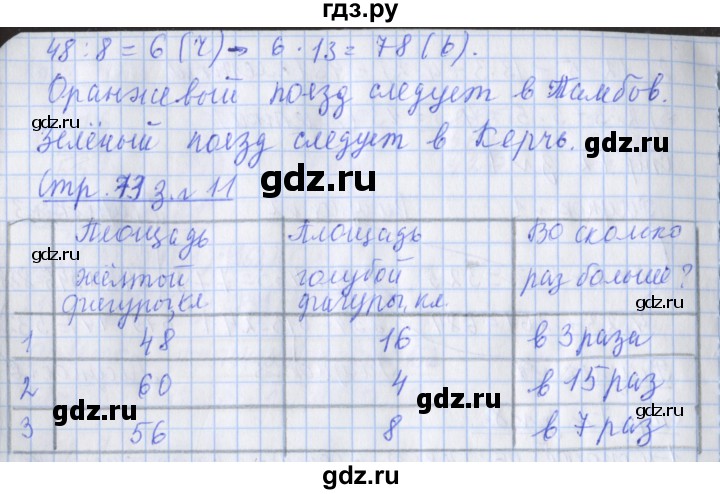 гдз.ру
48 : 8 = 6 (ч) - 6 · 13 = 78 (ь).
Оранжевый поезд следует в Тамбов.
gdz.ru
gdz.ru
Зелёный поезд следует в Керчь.
Стр. 73 з. 11
gdz.ru
gdz.ru
Площадь жёлтой фигуры, кл | Площадь голубой фигуры, кл | Во сколько раз больше?
gdz.ru
gdz.ru
1 | 48 | 16 | в 3 раза
2 | 60 | 4 | в 15 раз
gdz.ru
gdz.ru
3 | 56 | 8 | в 7 раз
gdz.ru
gdz.ru